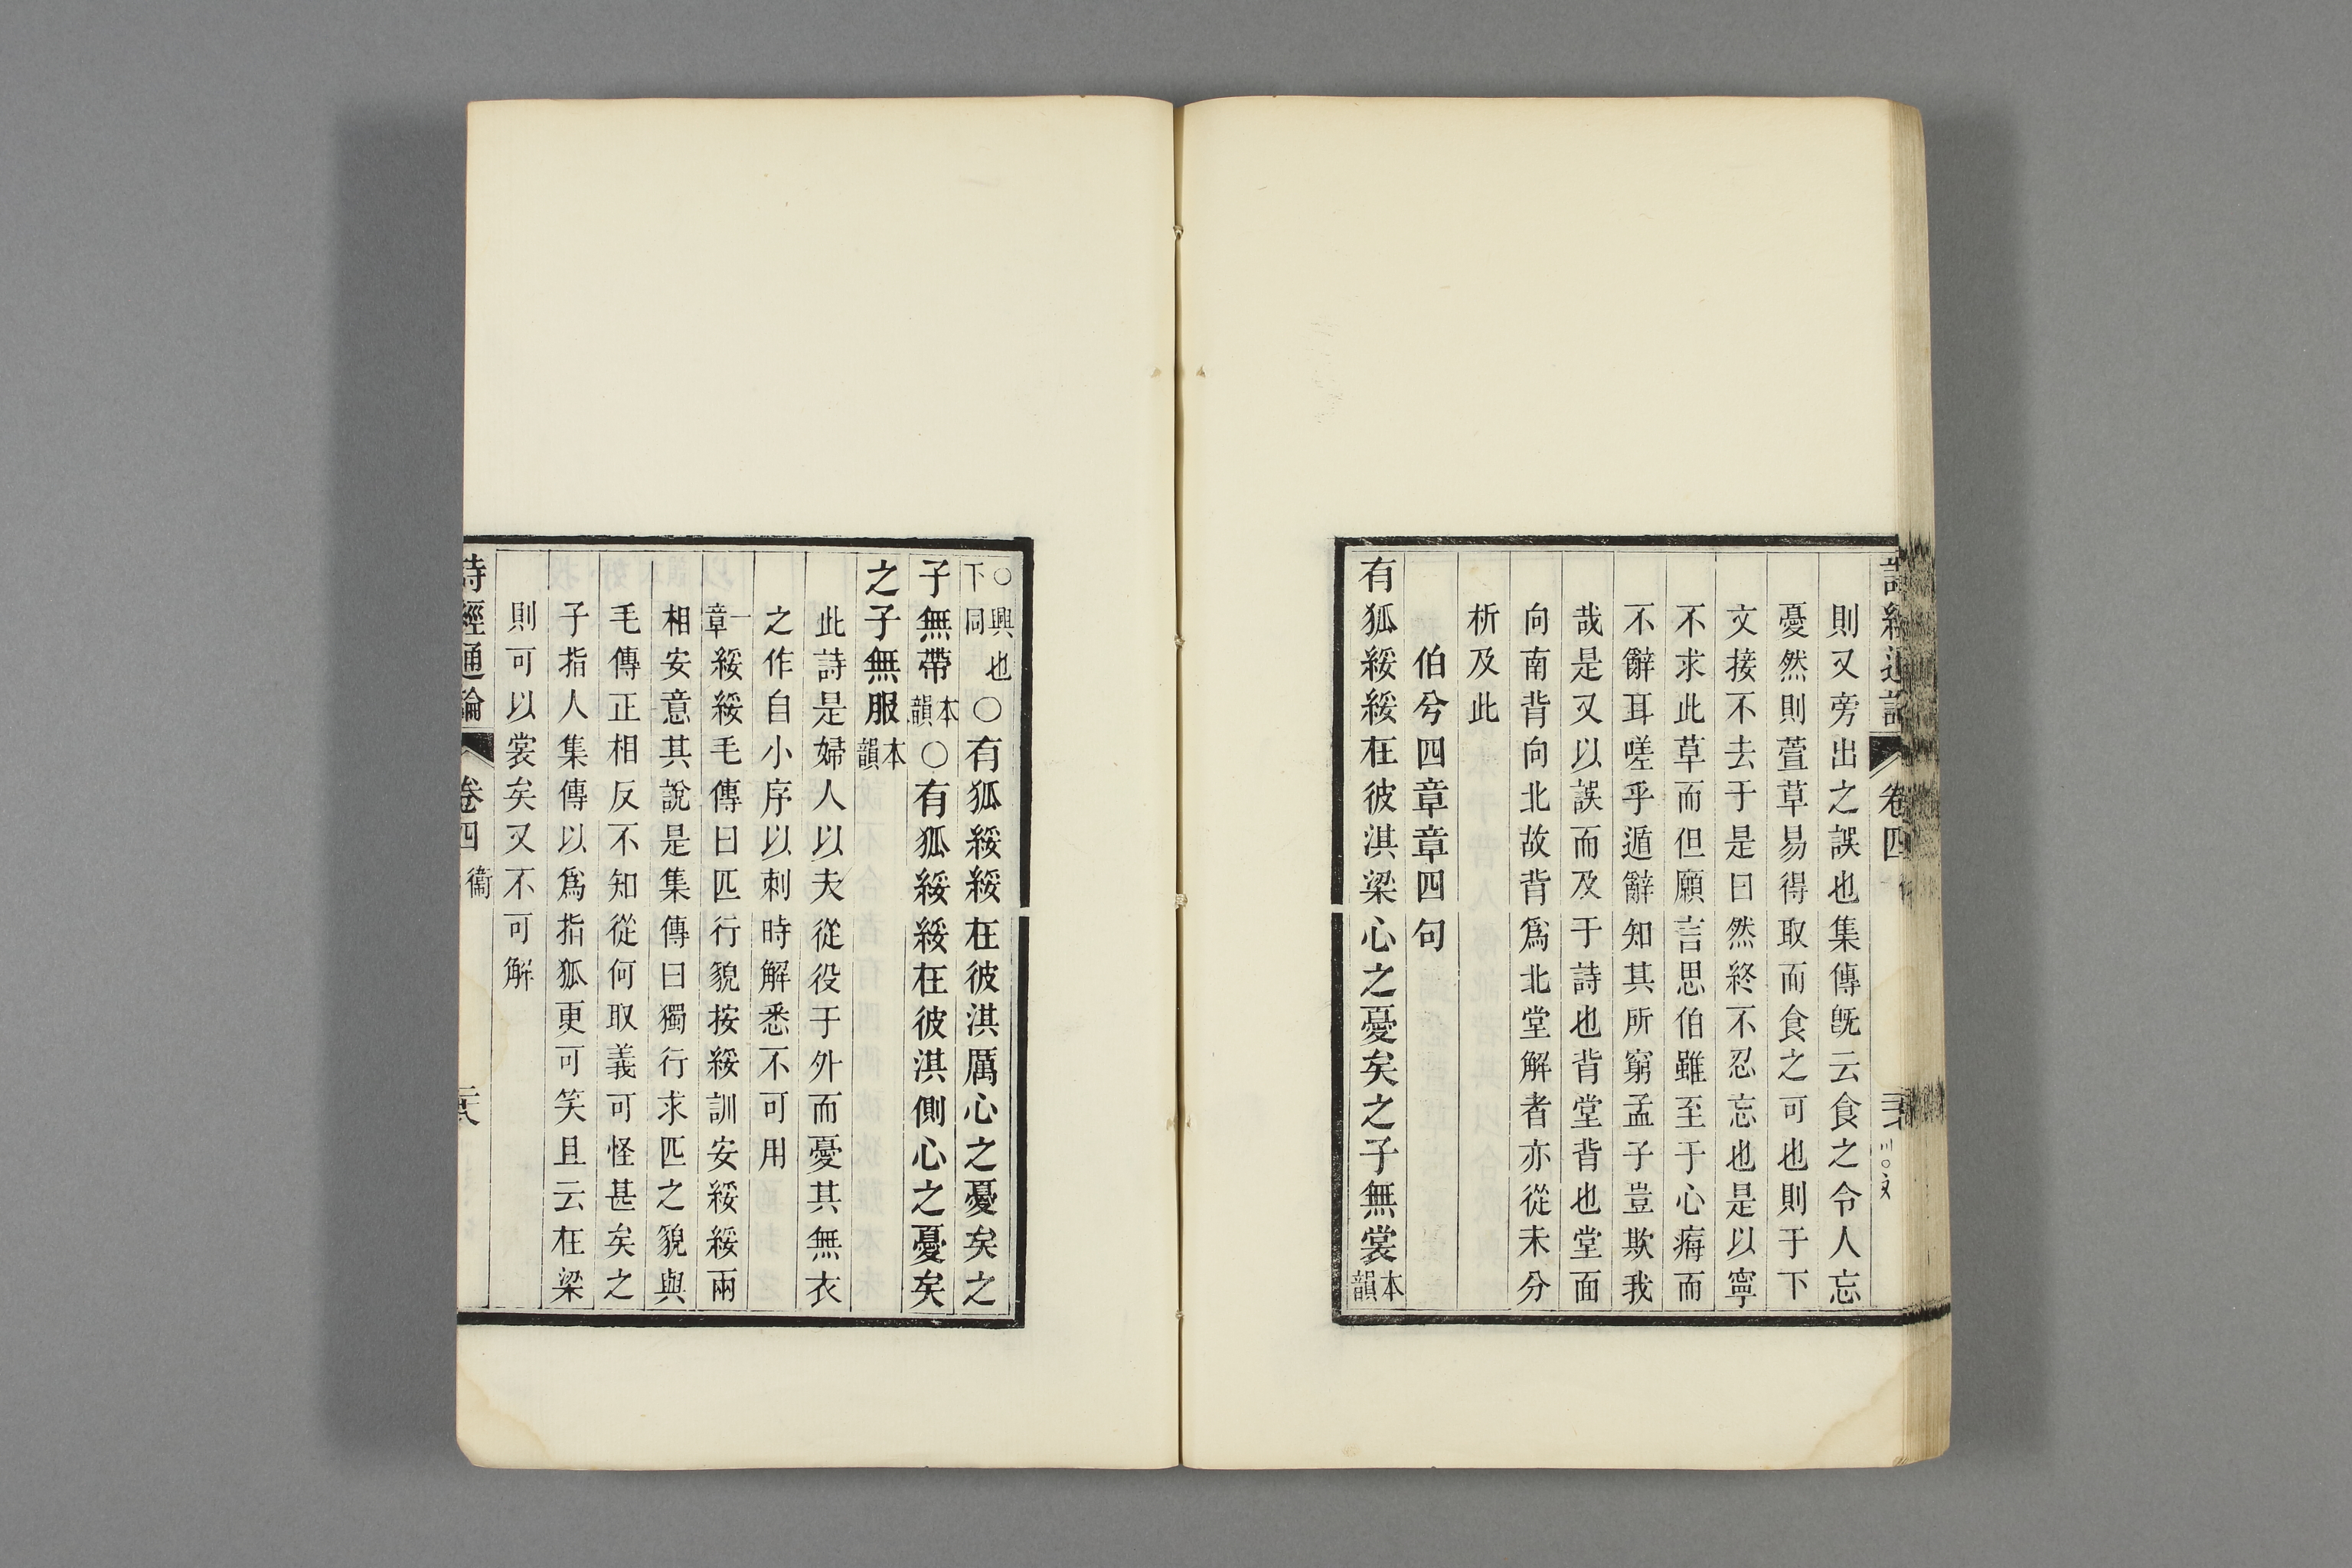 則又旁出之誤也集傳旣云食之令人忘
憂然則萱草易得取而食之可也則于下
文接不去于是曰然終不忍忘也是以寧
不求此草而但願言思伯雖至于心痗而
不辭耳嗟乎遁辭知其所窮孟子豈欺我
哉是又以誤而及于詩也背堂背也堂面
向南背向北故背爲北堂解者亦從未分
析及此
伯兮四章章四句
有狐綏綏在彼淇梁心之憂矣之子無裳本韻
○興也下同○有狐綏綏在彼淇厲心之憂矣之
子無帶本韻○有狐綏綏在彼淇側心之憂矣
之子無服本韻
此詩是婦人以夫從役于外而憂其無衣
之作自小序以刺時解悉不可用
一章綏綏毛傳曰匹行貌按綏訓安綏綏兩
相安意其說是集傳曰獨行求匹之貌與
毛傳正相反不知從何取義可怪甚矣之
子指人集傳以爲指狐更可笑且云在梁
則可以裳矣又不可解
詩經通論 卷四 衞